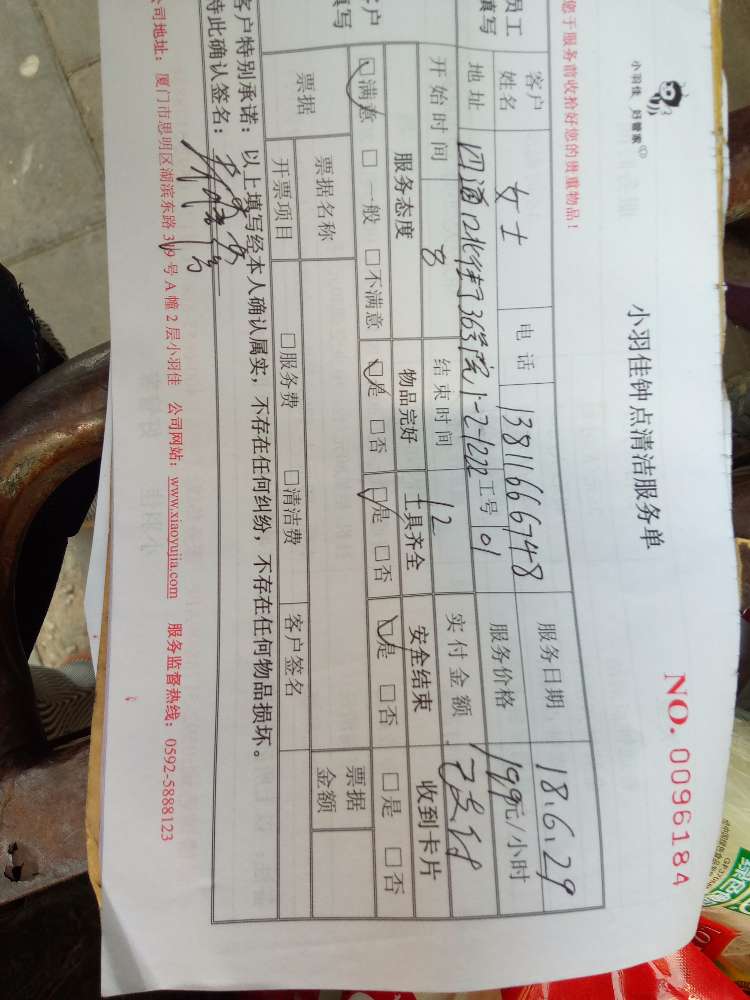 小羽佳 好管家
小羽佳钟点清洁服务单
NO. 0096184
您于服务前收拾好您的贵重物品!
员工 填写
客户 姓名 女士 电话 13811666748 服务日期 18.6.29
地址 四通口北街36号院1-2-1222 工号 01 服务价格 199元/小时
开始时间 8 结束时间 12 实付金额 已支付
客户 填写
服务态度 物品完好 工具齐全 安全结束 收到卡片
☑满意 □一般 □不满意 ☑是 □否 ☑是 □否 ☑是 □否 □是 □否
票据 票据名称 票据金额
开票项目 □服务费 □清洁费 客户签名
客户特别承诺:以上填写经本人确认属实,不存在任何纠纷,不存在任何物品损坏。
特此确认签名:
公司地址:厦门市思明区湖滨东路319号A幢2层小羽佳 公司网站:www.xiaoyujia.com 服务监督热线:0592-5888123